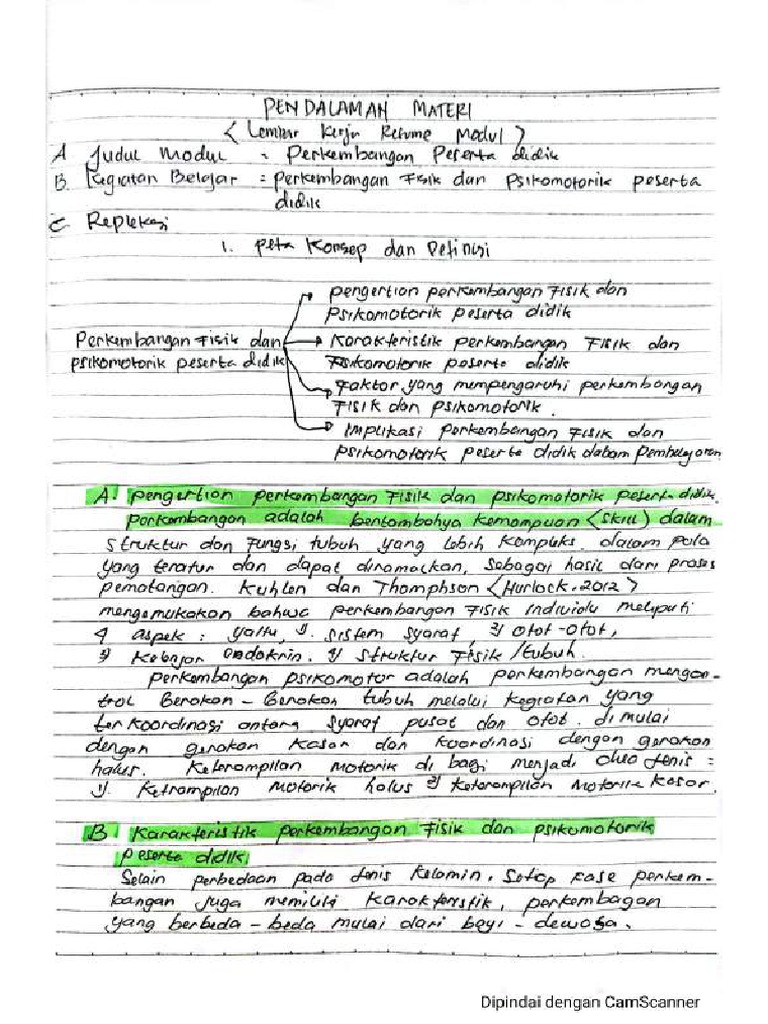 PENDALAMAN MATERI
< Lembar Kerja Resume Modul >
A Judul Modul = Perkembangan Peserta didik
B. Kegiatan Belajar = perkembangan Fisik dan Psikomotorik peserta
didik
C Repleksi
1. Peta Konsep dan Definisi
pengertian perkembangan Fisik dan
Psikomotorik peserta didik
Karakteristik perkembangan Fisik dan
Psikomotorik peserta didik
Perkembangan Fisik dan
psikomotorik peserta didik
Faktor yang mempengaruhi perkembangan
Fisik dan psikomotorik.
Implikasi perkembangan Fisik dan
Psikomotorik peserta didik dalam pembelajaran
A. pengertian perkembangan Fisik dan psikomotorik peserta didik
perkembangan adalah bentambahya kemampuan <skill> dalam
struktur dan Fungsi tubuh yang lebih kompleks. dalam pola
yang teratur dan dapat diramalkan, sebagai hasil dari proses
pematangan. Kuhlen dan Thomphson <Hurlock. 2012>
mengemukakan bahwa perkembangan Fisik Individu meliputi
4 aspek : yaitu, 1). sistem syaraf, 2) otot-otot,
3) Kelenjar endokrin. 4) struktur Fisik/tubuh.
perkembangan psikomotor adalah perkembangan mengon-
trol Gerakan - Gerakan tubuh melalui kegiatan yang
terkoordinasi antara syaraf pusat dan otot. di mulai
dengan gerakan kasar dan koordinasi dengan gerakan
halus. Keterampilan motorik di bagi menjadi dua Jenis :
1). Ketrampilan motorik halus 2) keterampilan motorik kasar.
B Karakteristik perkembangan Fisik dan psikomotorik
peserta didik
Selain perbedaan pada Jenis Kelamin, setiap Fase perkem-
bangan juga memiliki karakteristik, perkembagan
yang berbeda - beda mulai dari bayi - dewasa.
Dipindai dengan CamScanner